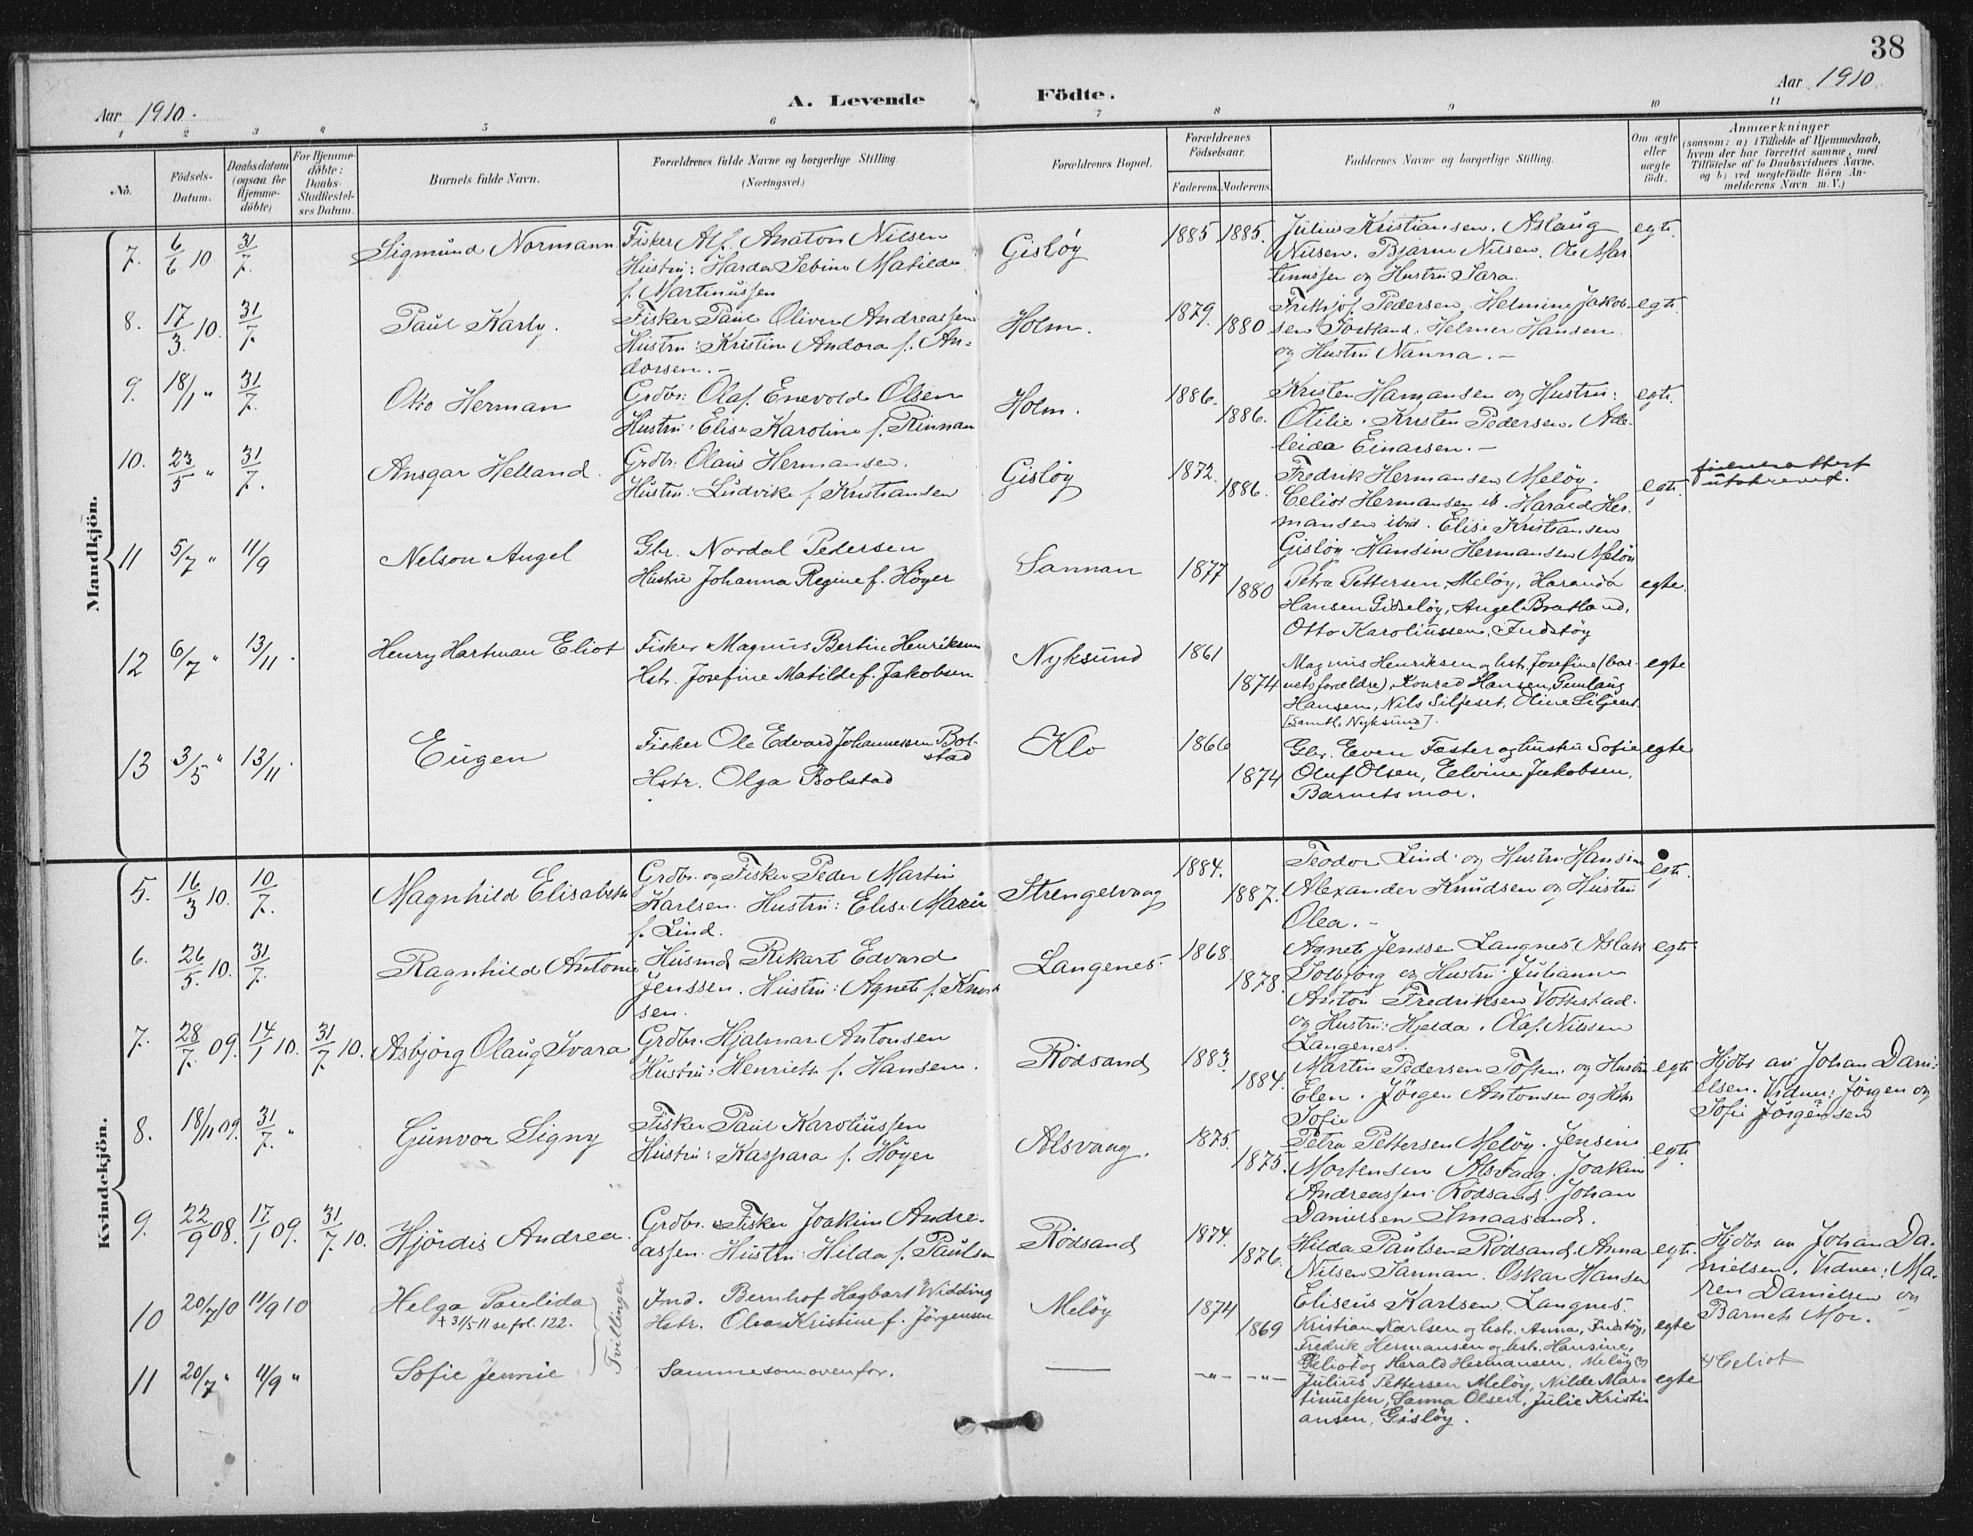 38
Aar 1910.
A. Levende Födte.
Aar 1910.
1 2 3 4 5 6 7 8 9 10 11
No.
Födsels-
Datum.
Daabsdatum
(ogsaa for
Hjemme-
döbte)
For Hjemme-
döbte:
Daabs-
Stadfæstel-
ses Datum.
Barnets fulde Navn.
Forældrenes fulde Navne og borgerlige Stilling.
(Næringsvei.)
Forældrenes Bopæl.
Forældrenes
Födselsaar.
Faderens. Moderens.
Faddernes Navne og borgerlige Stilling.
Om ægte
eller
uægte
födt.
Anmærkninger
(saasom: a) i Tilfælde af Hjemmedaab,
hvem der har forrettet samme, med
Tilföielse af to Daabsvidners Navne,
og b) ved uægtefödte Börn An-
melderens Navn m. V.)
Mandkjön.
7. 6/6 10 31/7. Sigmund Normann
Fisker Alf Anaton Nilsen
Hustru: Harda Sebine Matilde
f. Martinussen
Gisløy 1885 1885.
Julius Kristiansen. Aslaug
Nilsen. Bjarne Nilsen. Ole Mar
tinussen og Hustru Sara.
egte.
8. 17/3. 10. 31/7. Paul Karly.
Fisker Paul Oliver Andreassen
Hustru: Kristine Andora f. An-
dorsen. –
Holm. 1879. 1880
Frithjof Pedersen, Helmine Jakob-
sen Helmer Hansen
og Hustru Nanna. –
egte.
9. 18/11 " 31/7. Otto Herman
Grdbr: Olaf Enevold Olsen
Hustru: Elise Karoline f. Rinnan
Holm. 1886. 1886.
Kristen Hansen og Hustru:
Otilie. Kristen Pedersen. Ade-
leida Einarsen. –
egte.
10. 23/5 " 31/7. Ansgar Helland.
Grdbr: Olaus Hermansen.
Hustru: Ludvike f. Kristiansen
Gisløy 1872. 1886.
Fredrik Hermansen Meløy.
Celiot Hermansen ib. Harald Her-
mansen ibid. Elise Kristiansen
Gisløy. Hansin Hermansen Meløy
egte.
11 5/7 " 11/9 Nelson Angel
Gbr. Nordal Pedersen
Hustru Johanna Regine f. Höyer
Sannan 1877 1880
Petra Pettersen, Meløy, Haranda
Hansen Gisløy, Angel Bratland,
Otto Karoliussen, Indstöy
egte.
12 6/7 " 13/11. Henry Hartman Eliot
Fisker Magnus Bertin Henriksen
Hstr. Josefine Matilde f. Jakobsen
Nyksund 1861 1874
Magnus Henriksen og hstr. Josefine (bar-
netsforældre), Konrad Hansen, Gunlaug
Hansen, Nils Siljeset, Oline Siljeset
[Samtl. Nyksund].
egte
13 3/5 " 13/11. Eugen
Fisker Ole Edvard Johannessen Bol-
stad
Hstr. Olga Bolstad
Klo 1866 1874
Gbr. Even Faster og hustru Sofie
Oluf Olsen, Edvine Jakobsen,
Barnets mor.
egte
Kvindekjön.
5. 16/3 10. 10/7. Magnhild Elisabeth
Grdbr. og Fisker Peder Martin
Karlsen. Hustru: Elise Marie
f. Lind.
Strengelvaag 1884. 1887.
Teodor Lind og Hustru Hansine
Alexander Knudsen og Hustru
Olea. –
egte.
6. 26/5. 10. 31/7. Ragnhild Antonie
Husmd Rikart Edvard
Jenssen. Hustru: Agnete f. Knud
sen.
Langenes 1868. 1878.
Agnete Jenssen Langnes Aslak
Solbjörg og Hustru Julianne
Anton Fredriksen Vottestad.
og Hustru: Hjelda. Olaf Nilssen
Langenes.
egte
7. 28/7. 09. 14/1 10. 31/7. 10. Asbjörg Olaug Ivara
Grdbr. Hjalmar Antonsen
Hustru: Henriette f. Hansen.
Rödsand 1883. 1884.
Martin Pedersen Toften og Hustru
Elen. Jörgen Antonsen og Hstr
Sofie
egte
Hjdbt av Johan Dani-
elsen. Vidner: Jörgen og
Sofie Jörgensen
8. 18/11 09. 31/7. " Gunvor Signy
Fisker Paul Karoliussen
Hustru: Kaspara f. Höyer
Alsvaag. 1875. 1875.
Petra Pettersen Meløy. Jensine
Mortensen Alsvaag. Joakim
Andreassen Rödsand. Johan
Danielsen Smaasand.
egte.
9. 22/9 08. 17/1 09. 31/7. 10. Hjördis Andrea.
Grdbr. & Fisker Joakim Andre-
assen. Hustru: Hilda f. Paulsen
Rödsand 1874. 1876.
Hilda Paulsen Rödsand. Anna
Nilsen Sannan. Oskar Hansen
Eliseus Karlsen Langnes.
egte.
Hjdbt av Johan Da-
nielsen. Vidner: Ma-
ren Danielsen og
Barnets Mor.
10 20/7 10 11/9 10 Helga Paulida
+ 31/5-11 se fol. 122.
Tvillinger
Ind. Bernhof Hagbart Widding
Hstr. Olea Kristine f. Jörgensen
Meløy 1874 1869
Kristian Karlsen og hstr. Anna, Indstöy,
Fredrik Hermansen og hst. Hansine,
Celiot og Harald Hermansen, Meløy
egte
4 Celiot
11 20/7 " 11/9 " Sofie Jennie
Samme som ovenfor.
—— –"– –"–
Julius Pettersen Meløy, Nilde Mar-
tinussen, Sanna Olsen, Julie Kristi
ansen, Gisløy.
egte